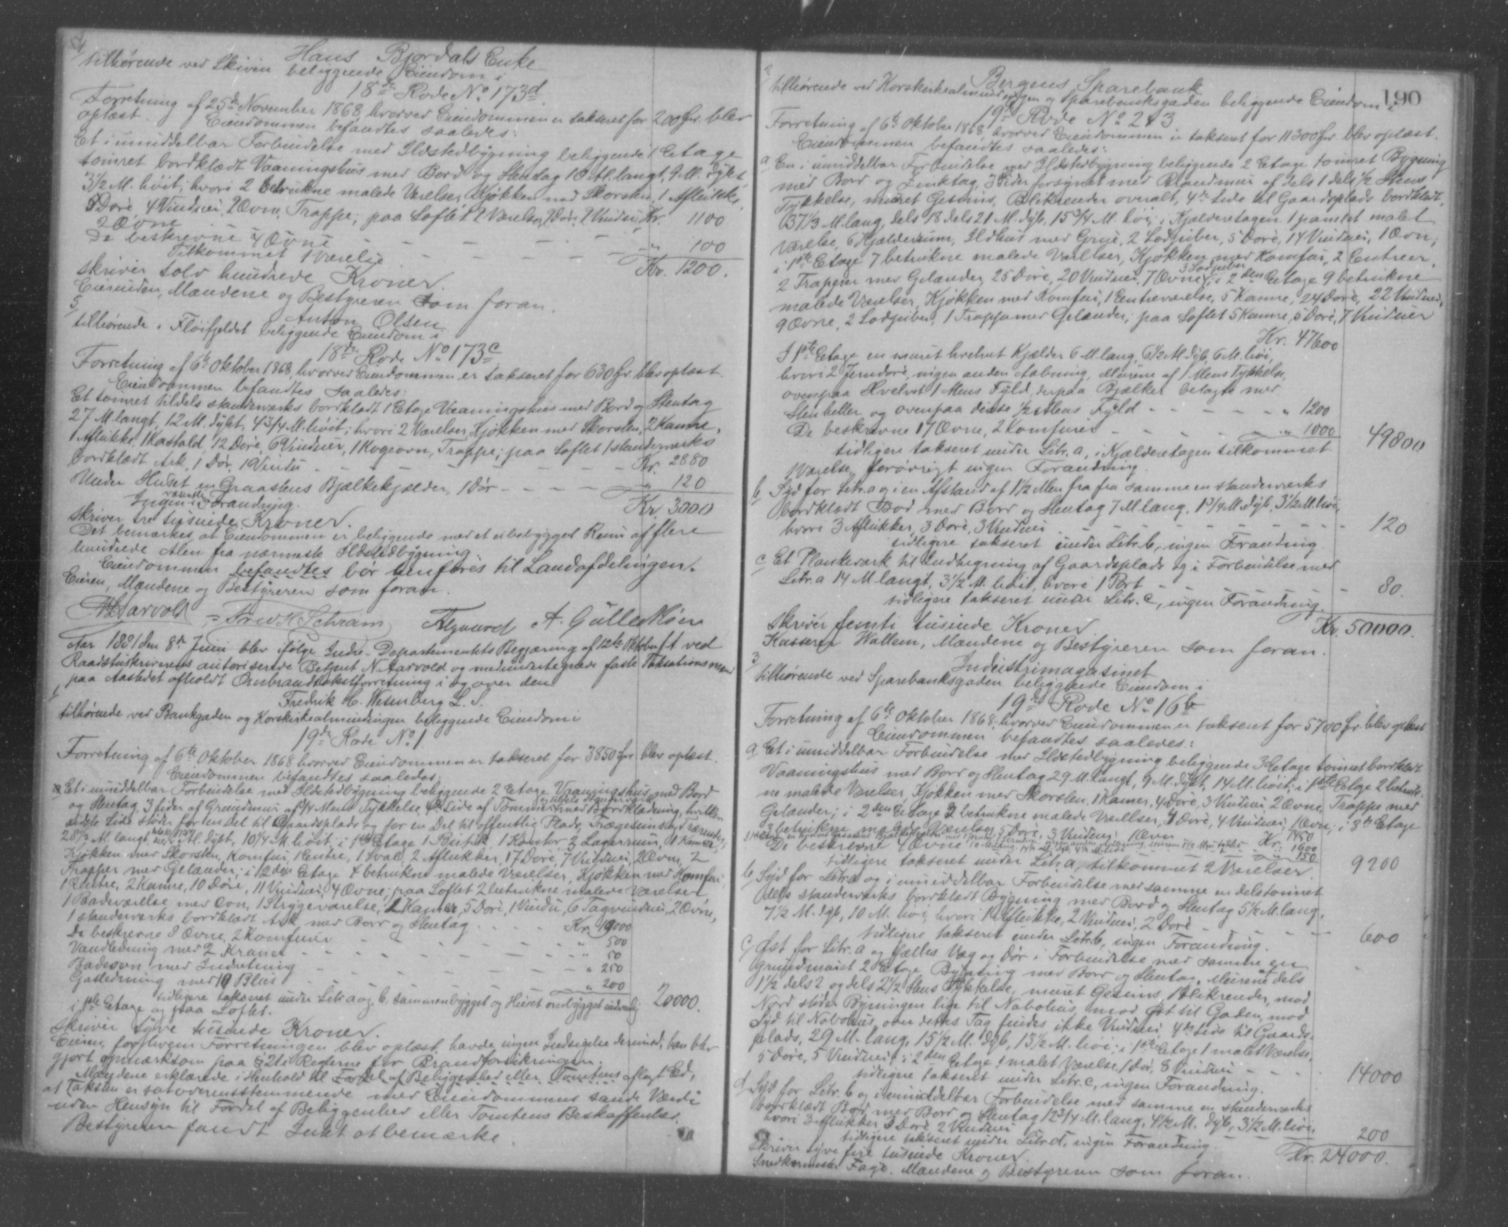 4/
Hans Bjordals Enke
tilhørende ved Skiven beliggende Eiendom i
18de Rode No 173d.
Forretning af 25de November 1868, hvorved Eiendommen er takseret for 200 Spd. blev
oplæst. Eiendommen befandtes saaledes:
Et i umiddelbar Forbindelse med Ildstedbygning beliggende 1 Etage
tømret bordklædt Vaaningshus med Bord og Hentag 18 M. langt, 9 M. dybt
3 1/2 M. høit; hvori 2 betrukne malede Værelser, Kjøkken med Skorsten, 1 Aflukke,
8 Døre 4 Vinduer, 2 Ovne, Trappe; paa Loftet 2 Værelser, 2 Døre, 2 Vinduer, Kr. 1100
2 Ovne
De beskrevne 4 Ovne - - - - - " 100
Tilkommet 1 Værelse Kr. 1200.
skriver tolv hundrede Kroner.
Eierinden, Mændene og Bestyreren som foran.
5
Anton Olsen
tilhørende i Fløifjeldet beliggende Eiendom i
18de Rode No 173c
Forretning af 6te Oktober 1868, hvorved Eiendommen er takseret for 630 Spd. blev oplæst.
Eiendommen befandtes saaledes:
Et tømret tildels standværks bordklædt 1 Etage Vaaningshus med Bord og Stentag
27 M. langt, 12 M. dybt, 4 3/4 M. høit; hvori 2 Værelser, Kjøkken med Skorsten, 2 Kamre,
1 Aflukke, 1 Kastald, 12 Døre, 6 Vinduer, 1 Kogeovn, Trappe; paa Loftet 1 standværks
bordklædt Ark, 1 Dør, 1 Vindu - - - - Kr. 2880
Under Huset en Graastens Bjælkekjælder, 1 Dør - - - - " 120
Ingen Forandring. Kr. 3000
skriver tre tusinde Kroner.
Det bemærkes at Eiendommen er beliggende med et ubebygget Rum af flere
hundrede Alen fra nærmeste Ildstedbygning.
Eiendommen befandtes bør henføres til Landafdelingen.
Eieren, Mændene og Bestyreren som foran.
N. Aarvold Fredr. Schram A. Gullaksen
Aar 1891 den 8de Juni blev ifølge Indre-Departementets Begjæring af 12te Oktober f. A. ved
Raadstuskriverens autoriserede Betjent N. Aarvold og medundertegnede faste Taksationsmænd
paa Aastedet afholdt Ombrandtakstforretning i og over den
1
Fredrik H. Wesenberg L. S.
tilhørende ved Bankgaden og Korskirkealmindingen beliggende Eiendom i
19de Rode No 1
Forretning af 6te Oktober 1868 hvorved Eiendommen er takseret for 3850 Spd. blev oplæst.
Eiendommen befandtes saaledes:
Et i umiddelbar Forbindelse med Ildstedbygning beliggende 2 Etage Vaaningshus med Bord
og Hentag 3 Sider af Grundmur af 1/4 Mens Tykkelse, 4de Side af Tømmer med Bordklædning, hvilken
sidste Side støder for en del til Gaardsplads og for en Del til offentlig Plads, Trægesimser og Tagrender,
28 1/2 M. langt, M. dybt, 10 1/4 M. høit; i 1ste Etage 1 Butik, 1 Kontor, 3 Lagerrum, 1 Kammer,
Kjøkken med Skorsten, Komfur, 1 Entre, 1 Sval, 2 Aflukker, 17 Døre, 7 Vinduer, 2 Ovne, 2
Trapper med Gelænder; i 2den Etage 4 betrukne malede Værelser, Kjøkken med Komfur
1 Entre, 2 Kamre, 10 Døre, 11 Vinduer, 4 Ovne; paa Loftet 2 betrukne malede Værelser
1 Badeværelse med Ovn, 1 Strygeværelse, 2 Kamre, 5 Døre, 1 Vindu, 6 Tagvinduer, 2 Ovne,
1 standværks bordklædt Ark med Bord og Hentag - - - Kr. 19000
De beskrevne 8 Ovne, 2 Komfurer - - - " 500
Vandledning med 2 Kraner - - - " 50
Badeovn med Indretning - - - " 250
Gasledning med 19 Blus - - - " 200
tidligere takseret under Litr. a og b. sammenbygget og Huset ombygget indvendig 20000.
i 1ste Etage og paa Loftet.
skriver tyve tusinde Kroner.
Eieren, for hvem Forretningen blev oplæst, havde ingen Indsigelse derimod; han blev
gjort opmærksom paa § 21s Reglerne for Brandforsikringen.
Mændene erklærede i Henhold til Fordel af Beliggenhed eller Tomtens aflagt Ed,
at Taksten er i overensstemmende med Eiendommens sande Værdi
uden Hensyn til Fordel af Beliggenhed eller Tomtens Beskaffenhed.
Bestyreren fandt Intet at bemærke.
190
2
Bergens Sparebank
tilhørende ved Korskirkealmindingen og Sparebanksgaden beliggende Eiendom i
19de Rode No 2 & 3
Forretning af 6te Oktober 1868, hvorved Eiendommen er taksert for 11300 Spd. blev oplæst.
Eiendommen befandtes saaledes:
a En i umiddelbar Forbindelse med Ildstedbygning beliggende 2 Etage tømret Bygning
med Bord og Zinktag, 3 Sider forsynet med Brandmur af dels 1 dels 1/2 Stens
Tykkelse, muret Gesims, Blikrender overalt, 4de Side til Gaardsplads bordklædt,
37 1/3 M. lang, dels 18 dels 21 M. dyb, 15 3/4 M. høi; i Kjælderetagen 1 panelet malet
Værelse, 6 Kjælderrum, Ildhus med Grue, 2 Lodpiber, 5 Døre, 14 Vinduer, 1 Ovn;
i 1ste Etage 7 betrukne malede Værelser, Kjøkken med Komfur, 2 Entreer,
2 Trapper med Gelænder, 25 Døre, 20 Vinduer, 7 Ovne, 3 Lodpiber; i 2den Etage 9 betrukne
malede Værelser, Kjøkken med Komfur, 1 Entreværelse, 5 Kamre, 24 Døre, 22 Vinduer,
9 Ovne, 2 Lodpiber, 1 Trappe med Gelænder, paa Loftet 5 Kamre, 6 Døre, 7 Vinduer
Kr. 47600
I 1ste Etage en muret hvelvet Kjælder 6 M. lang, 6 1/2 M. dyb, 6 M. høi,
hvori 2 Jerndøre, ingen anden Aabning, Murene af 1 Stens Tykkelse,
ovenpaa Hvelvet 1 Mens Fyld, derpaa Bjælker belagte med
Stenheller og ovenpaa dennes 1/2 Mens Fyld - - - - " 1200
De beskrevne 17 Ovne, 2 Komfurer - - - - " 1000 49800
tidligere takseret under Litr. a, i Kjælderetagen tilkommet
1 Værelse, forøvrigt ingen Forandring.
b Syd for Litr. a og i en Afstand af 1 1/2 Alen fra fra samme en standværks
bordklædt Bod med Bord og Hentag 7 M. lang, 1 3/4 M. dyb, 3 1/2 M. høi,
hvori 3 Aflukker, 3 Døre, 3 Vinduer - - - - 120
tidligere takseret under Litr. b, ingen Forandring
c Et Plankeværk til Indhegning af Gaardsplads og i Forbindelse med
Litr. a 14 M. langt, 3 1/2 M. høit, hvori 1 Port - - - - 80.
tidligere takseret under Litr. c, ingen Forandring.
Kr. 50000.
skriver femti tusinde Kroner
Kasserer Wallem, Mændene og Bestyreren som foran.
3
Industrimagasinet
tilhørende ved Sparebanksgaden beliggende Eiendom i
19de Rode No 16b
Forretning af 6te Oktober 1868 hvorved Eiendommen er takseret for 5700 Spd. blev oplæst
Eiendommen befandtes saaledes:
a Et i umiddelbar Forbindelse med Ildstedbygning beliggende 3 Etage tømret bordklædt
Vaaningshus med Bord og Hentag 29 M. langt, 9 M. dybt, 14 M. høit; i 1ste Etage 2 betruk-
ne malede Værelser, Kjøkken med Skorsten, 1 Kammer, 4 Døre, 3 Vinduer 2 Ovne, Trappe med
Gelænder; i 2den Etage 2 betrukne malede Værelser, 3 Døre, 4 Vinduer, 1 Ovn; i 3die Etage
2 betrukne malede Værelser, 5 Døre, 3 Vinduer 1 Ovn Kr. 7450
De beskrevne 4 Ovne 1600
150 9200
tidligere takseret under Litr. a, tilkommet 2 Værelser.
b Syd for Litr. a og i umiddelbar Forbindelse med samme en dels tømret
dels standværks bordklædt Bygning med Bord og Hentag 5 1/2 M. lang,
7 1/2 M. dyb, 10 M. høi, hvori 1 Aflukke, 2 Vinduer, 2 Døre - - - 600
tidligere takseret under Litr. b, ingen Forandring.
c Øst for Litr. a og fælles Væg og Dør i Forbindelse med samme en
grundmuret 2 Etage Bygning med Bord og Hentag, Murene dels
1 1/2 dels 2 og dels 2 1/2 Stens Tykkelse, muret Gesims, Blikrender, mod
Nord støder Bygningen lige til Nabohus, mod Øst til Gaden, mod
Syd til Nabohus, over dettes Tag findes ikke Vinduer 4de Side til Gaards-
plads, 29 M. lang, 15 1/2 M. dyb, 13 1/2 M. høi; i 1ste Etage 1 malet Værelse,
5 Døre, 5 Vinduer; i 2den Etage 1 malet Værelse, 1 Dør, 8 Vinduer - - - 14000
tidligere takseret under Litr. c, ingen Forandring.
d Syd for Litr. b og i umiddelbar Forbindelse med samme en standværks
bordklædt Bod med Bord og Hentag 12 3/4 M. lang, 4 1/2 M. dyb, 3 1/2 M. høi,
hvori 3 Aflukker 3 Døre 2 Vinduer - - - - 200
tidligere takseret under Litr. d, ingen Forandring Kr. 24000.
skriver tyve fire tusinde Kroner.
Snedkermester Fage. Mændene og Bestyreren som foran.